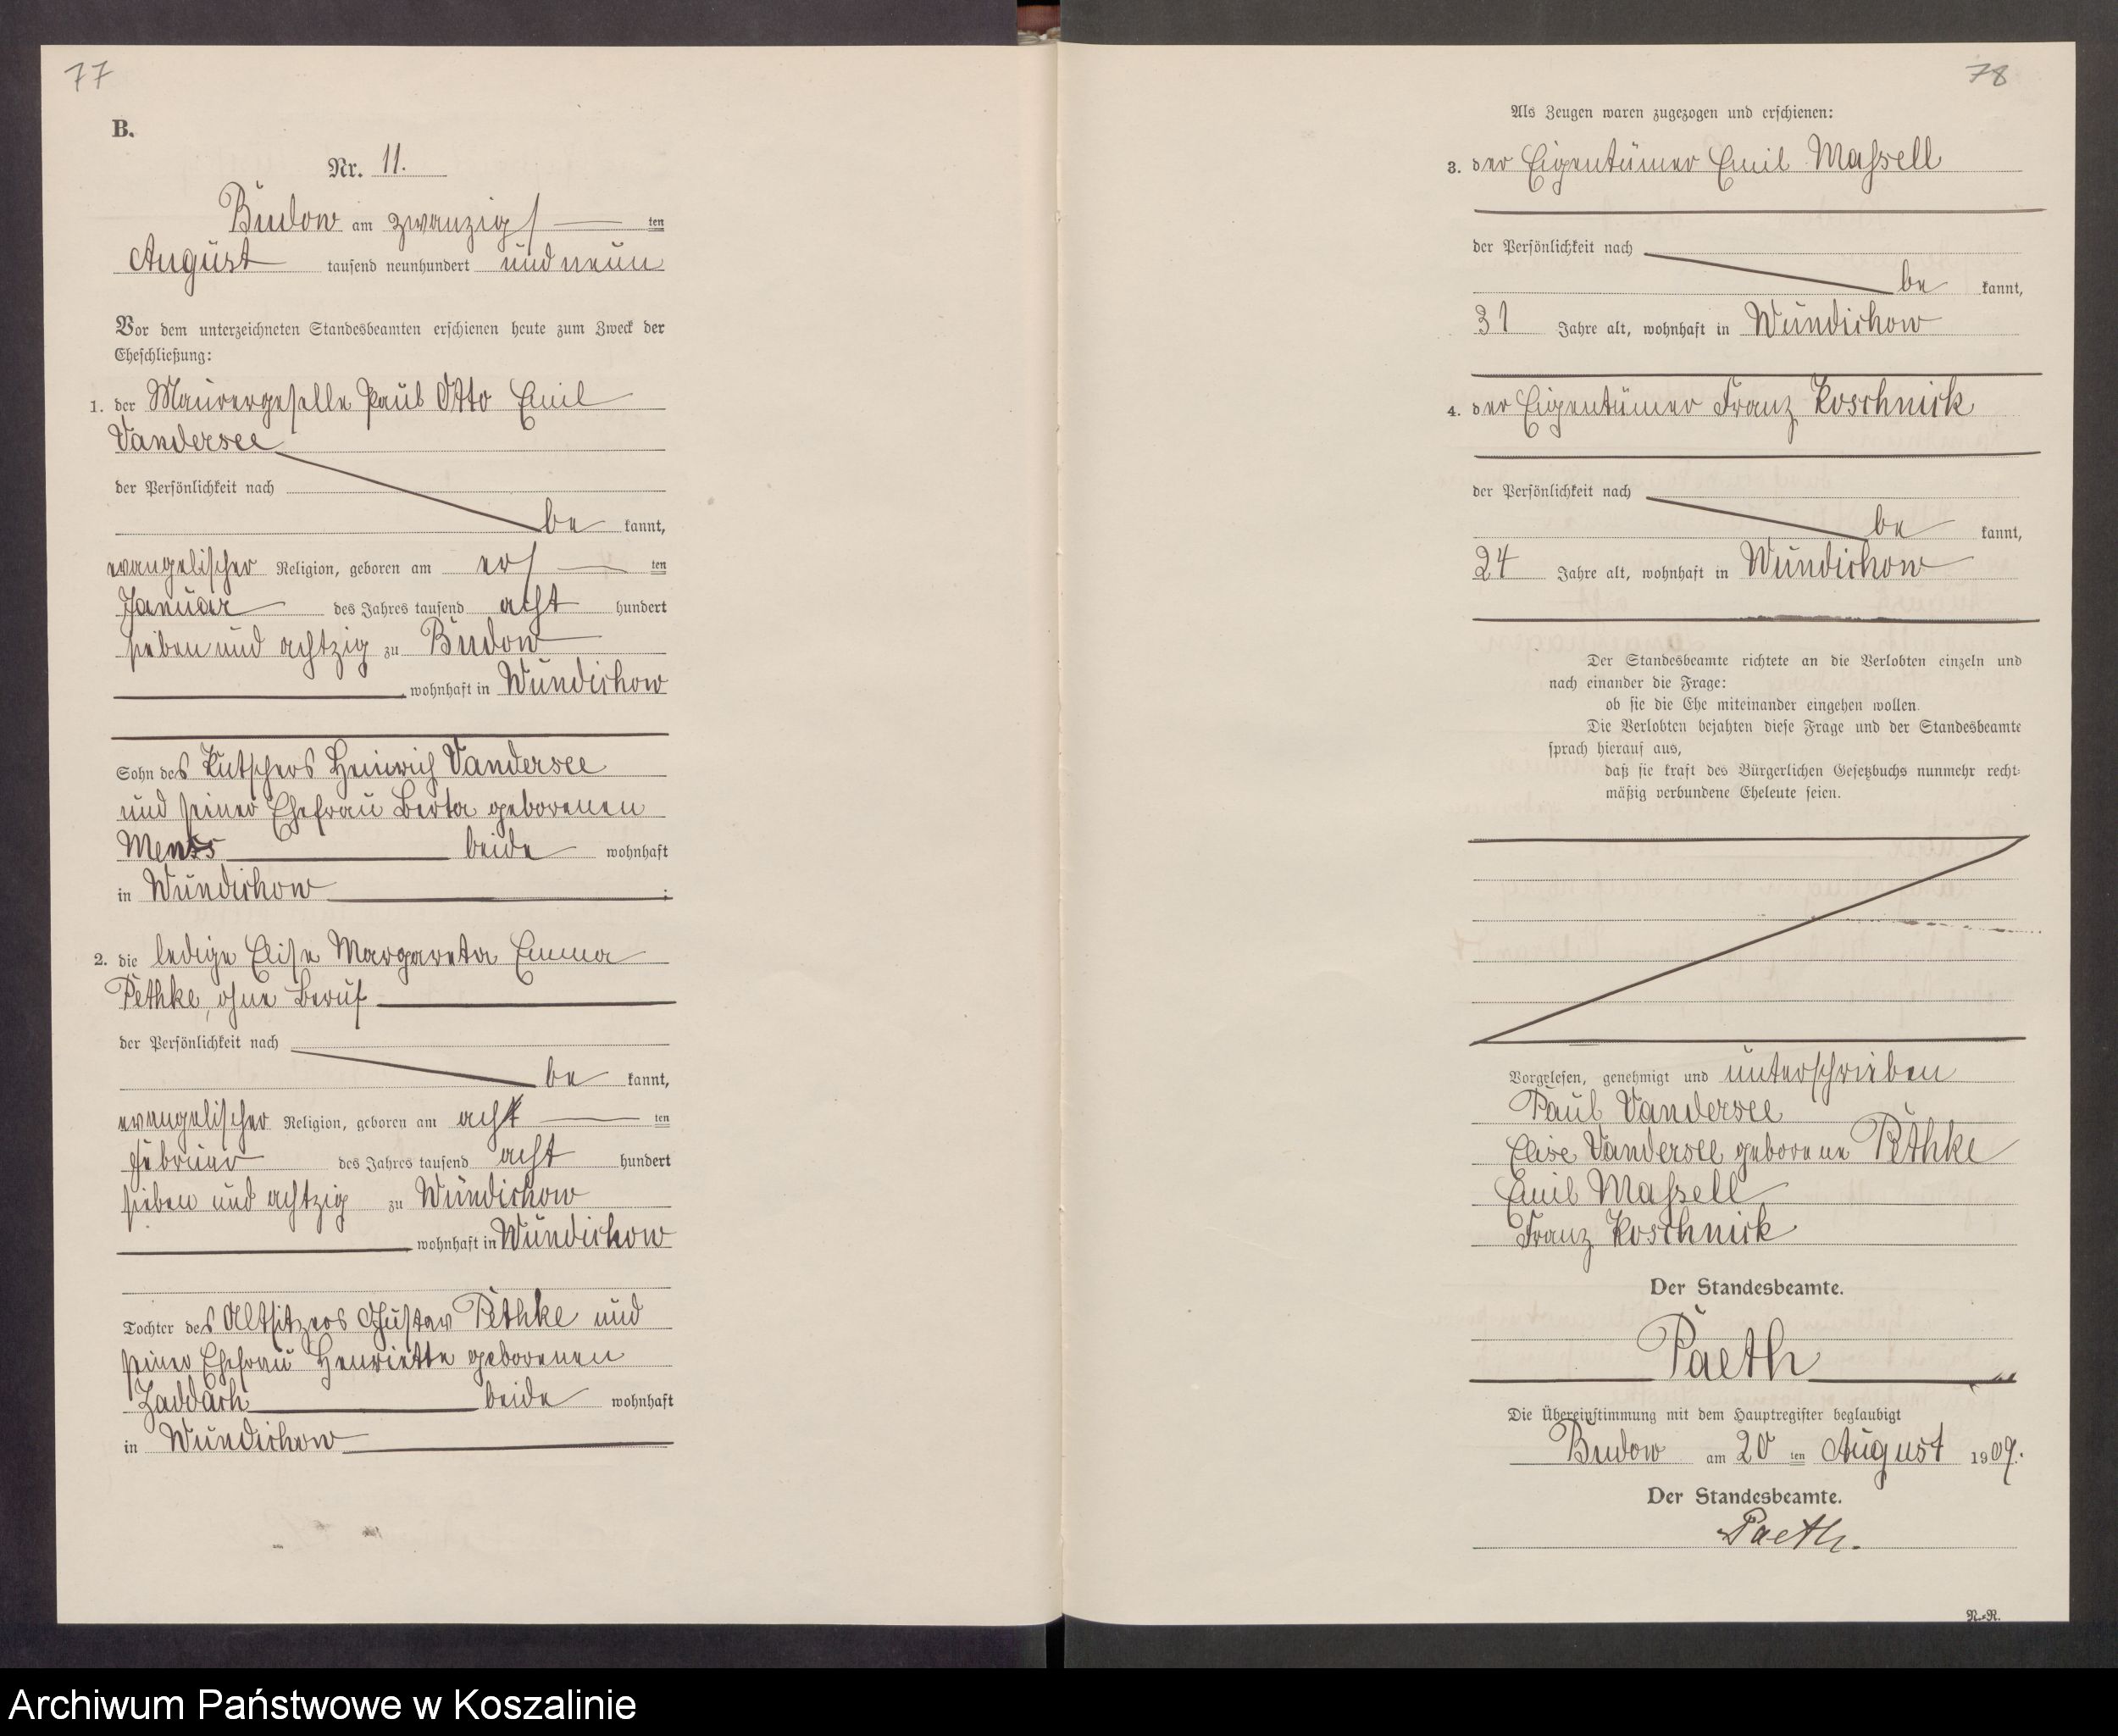 77
B.
Nr. 11.
Budow am zwanzigs ten
August tausend neunhundert und neun
Vor dem unterzeichneten Standesbeamten erschienen heute zum Zweck der
Eheschließung:
1. der Maurergeselle Paul Otto Emil
Vandersee
der Persönlichkeit nach
be kannt,
evangelischer Religion, geboren am ers ten
Januar des Jahres tausend acht hundert
sieben und achtzig zu Budow
wohnhaft in Wundichow
Sohn des Kutschers Heinrich Vandersee
und seiner Ehefrau Berta geborenen
beide wohnhaft
in Wundichow ;
2. die ledige Elise Margareta Emma
Pethke, ohne Beruf
der Persönlichkeit nach
be kannt,
evangelischer Religion, geboren am acht ten
Februar des Jahres tausend acht hundert
sieben und achtzig zu Wundichow
wohnhaft in Wundichow
Tochter des Altsitzers Gustav Pethke und
seiner Ehefrau Henriette geborenen
Zaddach beide wohnhaft
in Wundichow
78
Als Zeugen waren zugezogen und erschienen:
3. der Eigentümer Emil Massell
der Persönlichkeit nach
be kannt,
31 Jahre alt, wohnhaft in Wundichow
4. der Eigentümer Franz Koschnick
der Persönlichkeit nach
be kannt,
24 Jahre alt, wohnhaft in Wundichow
Der Standesbeamte richtete an die Verlobten einzeln und
nach einander die Frage:
ob sie die Ehe miteinander eingehen wollen.
Die Verlobten bejahten diese Frage und der Standesbeamte
sprach hierauf aus,
daß sie kraft des Bürgerlichen Gesetzbuchs nunmehr recht-
mäßig verbundene Eheleute seien.
Vorgelesen, genehmigt und unterschrieben
Paul Vandersee
Elise Vandersee geborene Pethke
Emil Massell
Franz Koschnick
Der Standesbeamte.
Paeth
Die Übereinstimmung mit dem Hauptregister beglaubigt
Budow am 20 ten August 1909.
Der Standesbeamte.
Paeth.
N.-R.
Archiwum Państwowe w Koszalinie